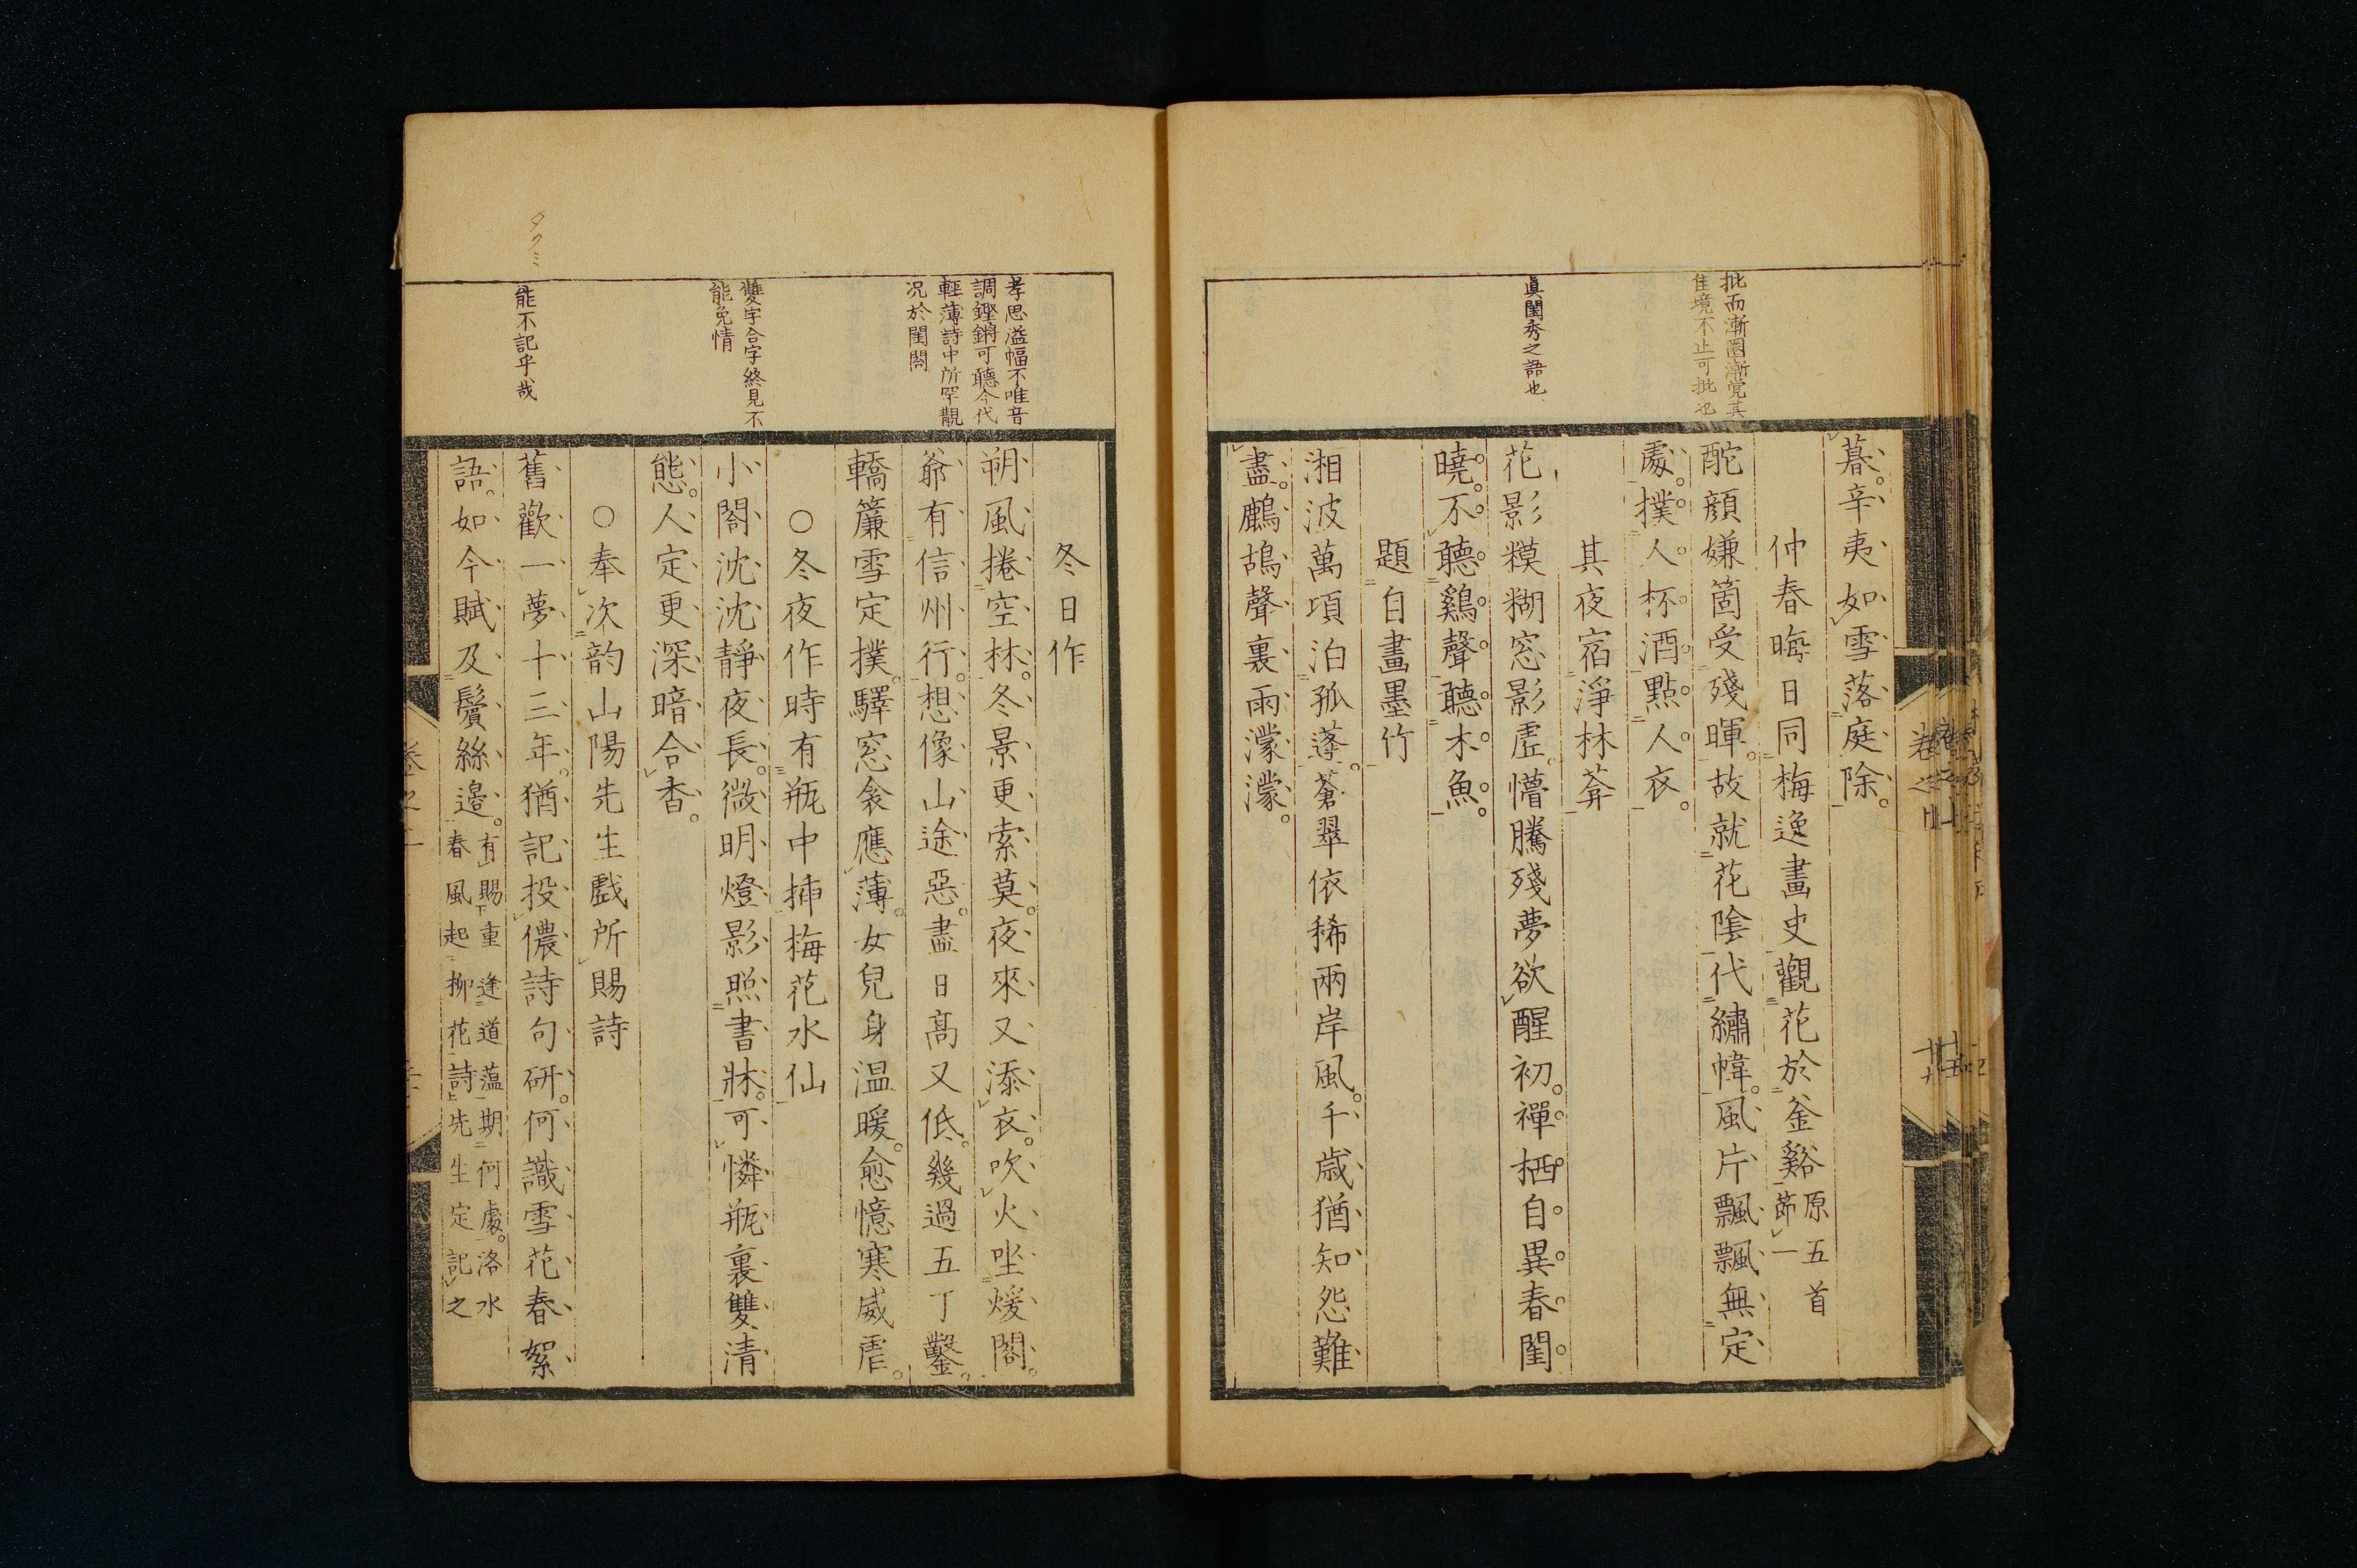 批而漸圏漸覚其
佳境不止可批也
真閨秀之語也
暮。辛夷如雪落庭除。
仲春晦日同梅逸畫史觀花於釜谿
原五首
節一
酡顔嫌箇受殘暉。故就花陰代繡幃。風片飄飄無定
處。撲人杯酒點人衣。
其夜宿淨林菴
花影糢糊窓影虛。懵騰殘夢欲醒初。禪栖自異春閨
曉。不聽鷄聲聽木魚。
題自畫墨竹
湘波萬項泊孤蓬。蒼翠依稀兩岸風。千歲猶知怨難
盡。鷓鴣聲裏雨濛濛。
孝思溢幅不唯音
調鏗鏘可聽今代
輕薄詩中所罕覯
况於閨閤
雙字合字終見不
能免情
能不記乎哉
タクミ
冬日作
朔風捲空林。冬景更索莫。夜來又添衣。吹火坐煖閣。
爺有信州行。想像山途惡。盡日高又低。幾過五丁鑿。
轎簾雪定撲。驛窓衾應薄。女兒身温暖。愈憶寒威虐。
○冬夜作時有瓶中挿梅花水仙
小閤沈沈靜夜長。微明燈影照書牀。可憐瓶裏雙清
態。人定更深暗合香。
○奉次韵山陽先生戲所賜詩
舊歡一夢十三年。猶記投儂詩句研。何識雪花春絮
語。如今賦及鬢絲邊。
有賜重逢道蘊期何處。洛水
春風起柳花詩先生定記之